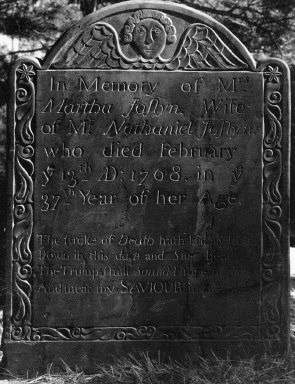 In Memory of Mrs
Martha Joſlyn Wife
of Mr Nathaniel Joſlyn
who died February
ye 13th AD: 1768. in ye
37th Year of her Age.
The ſtroke of Death hath laid my Head
Down in this dark and
The Trump ſhall Sound I
And meet my SAVIOUR in